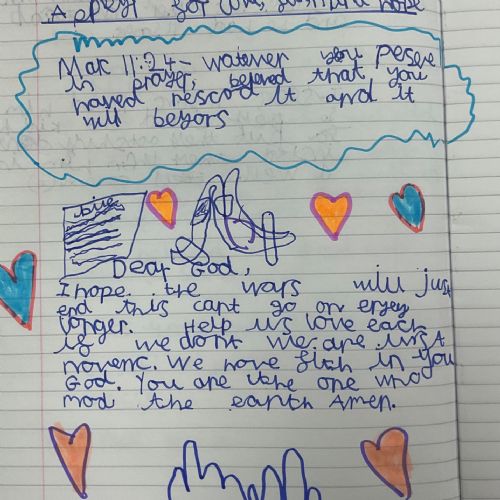 A prayer for love, and hope
Mar 11:24 - watever you perseve
in prayer, beleved that you
haved rescod it and it
will beyors
bible
Dear God,
I hope the wars will just
end this cant go on enjey
longer. Help us love each
if we dont we are just
We have fith in you
God. You are the one who
mad the earth Amen.